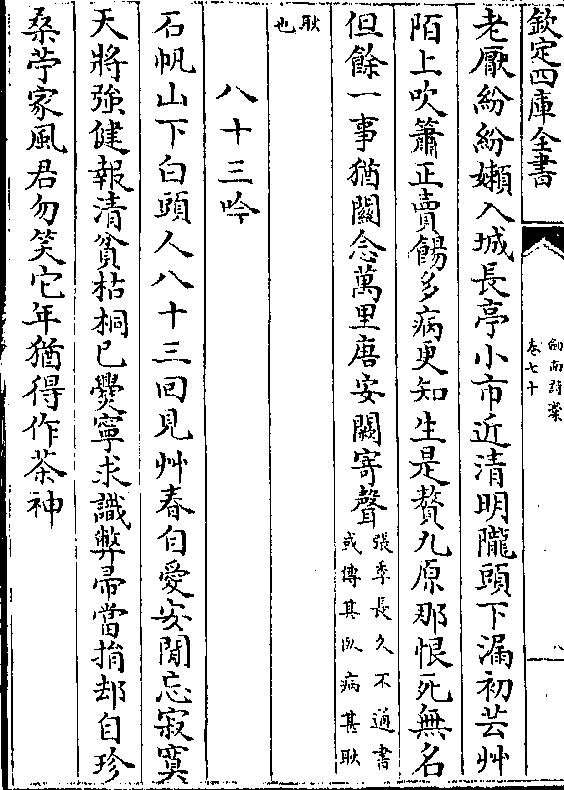 欽定四庫全書
劍南詩槀
卷七十
八
老厭紛紛嬾入城長亭小市近清明隴頭下漏初芸艸
陌上吹簫正賣餳多病更知生是贅九原那恨死無名
但餘一事猶關念萬里唐安闕寄聲張季長久不通書
或傳其臥病甚耿
耿
也
八十三吟
石帆山下白頭人八十三回見艸春自愛安閒忘寂寞
天將強健報清貧枯桐已爨寧求識弊帚當捐却自珍
桑苧家風君勿笑它年猶得作茶神